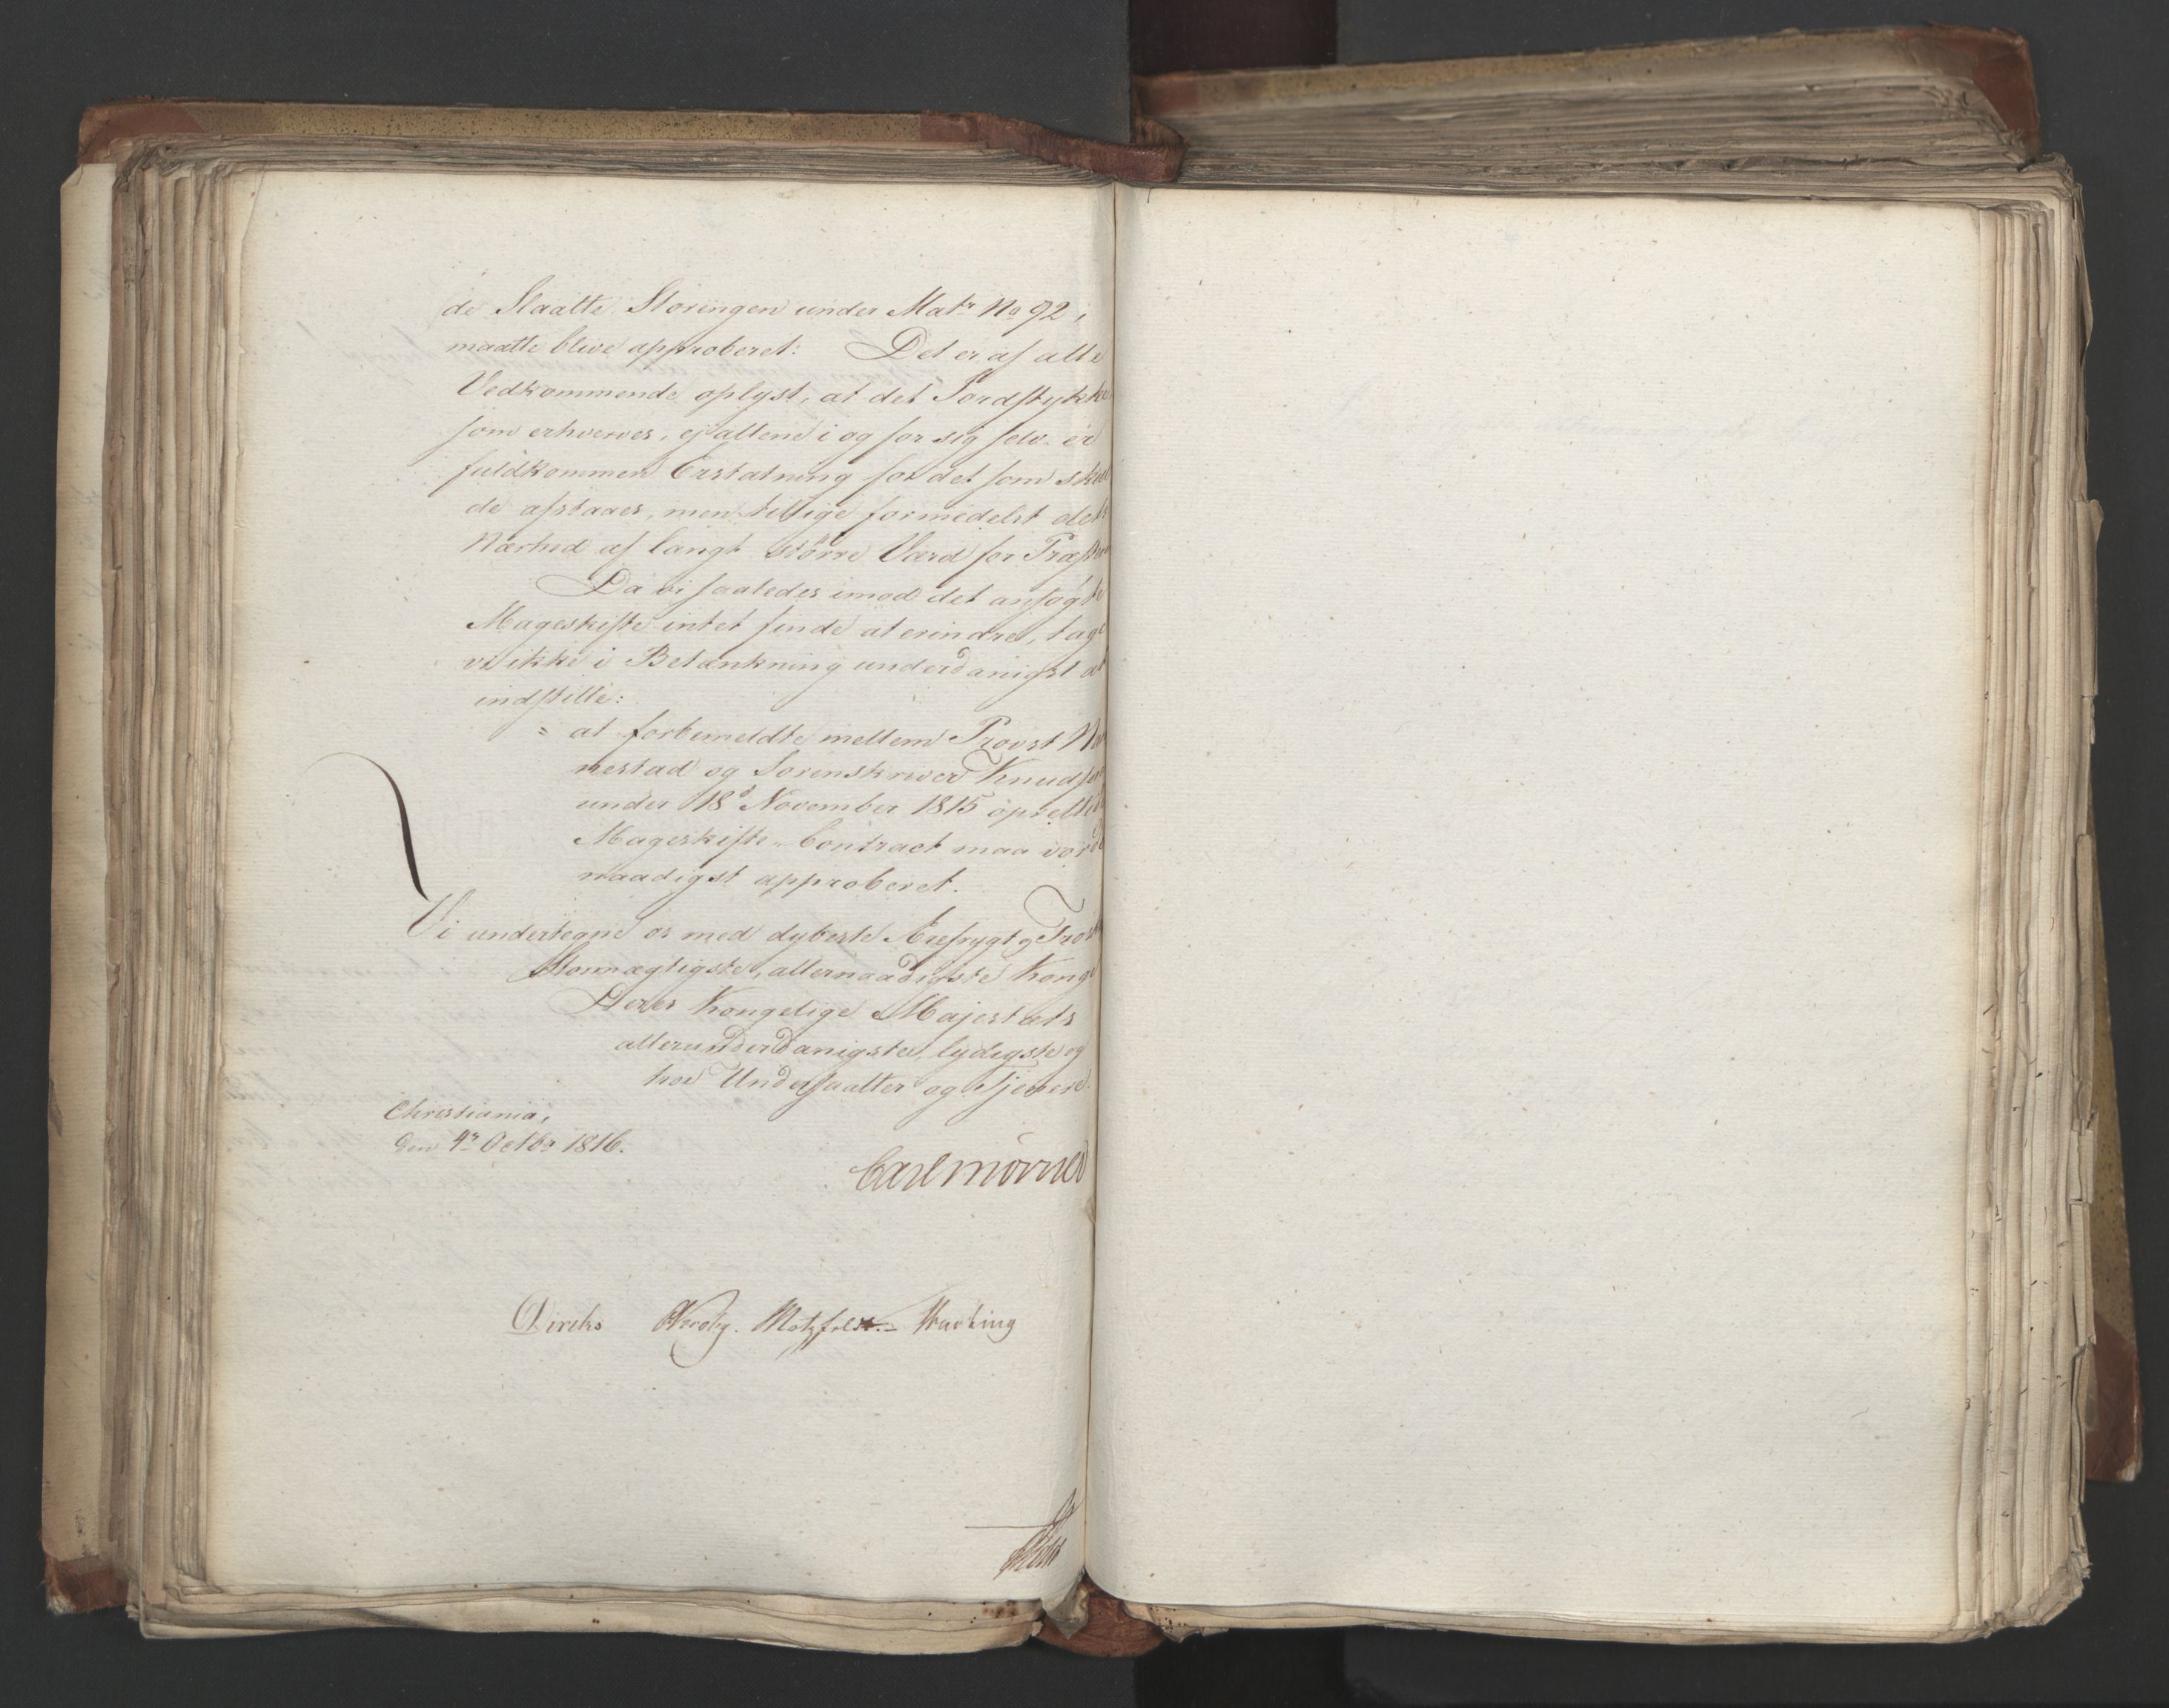 de Slaatte Storengen under Matr No 92,
maatte blive approberet: Det er af alle
Vedkommende oplyst, at det Jordstykke
som erhverves, ej allene i og for sig selv er
fuldkommen Erstatning for det som skul
de afstaaes, men tillige formedelst dets
Nærhed af langt større Værd for Præsten
Da vi saaledes imod det ansøgte
Mageskifte intet finde at erindre, tage
vi ikke i Betænkning underdanigst at
indstille:
= at forbemeldte mellem Provst
nestad og Sorenskriver Knudsen
under 18d November 1815 oprettede
Mageskifte-Contract maa vorde
naadigst approberet.
Vi undertegne os med dybeste Ærefrygt og Trosk
Stormægtigste, allernaadigste Konge
Deres Kongelige Majestæts
allerunderdanigste, lydigste og
troe Undersaatter og Tjenere.
Christiania,
den 4r Octbr 1816.
Carl Mörner
Diriks Motzfeldt